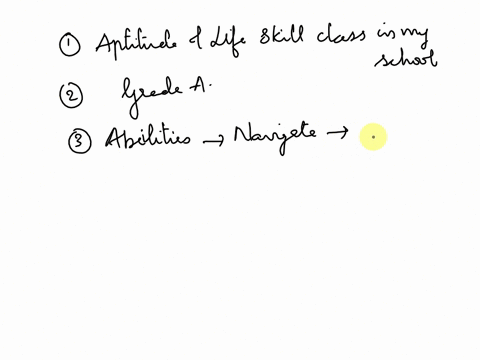 ① Aptitude & Life Skill class in my
school
② Grade A.
③ Abilities → Navigate →